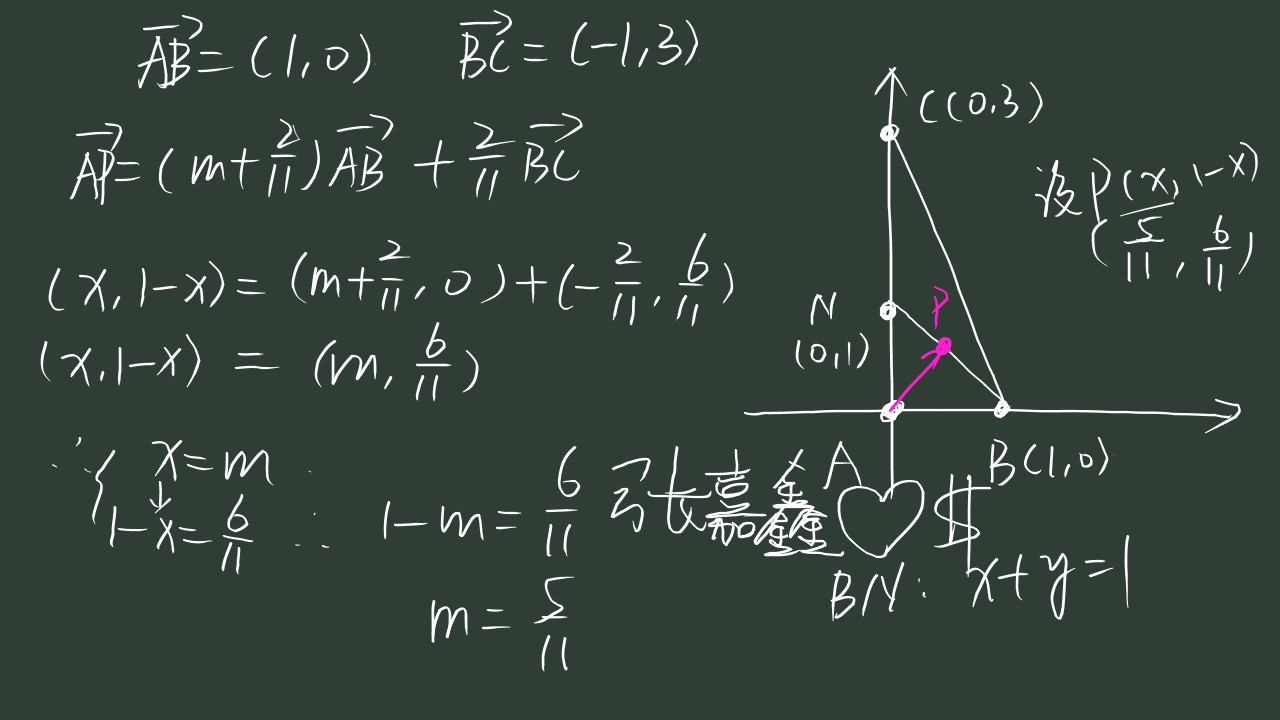 AB→=(1,0) BC→=(-1,3)
AP→=(m+2/11)AB→+2/11BC→
(x,1-x)=(m+2/11,0)+(-2/11,6/11)
(x,1-x)=(m,6/11)
∴{x=m
1-x=6/11
∴ 1-m=6/11
m=5/11
张嘉鑫♡$
C(0,3)
设P(x,1-x)
(5/11,6/11)
N
(0,1)
P
A
B(1,0)
BN: x+y=1